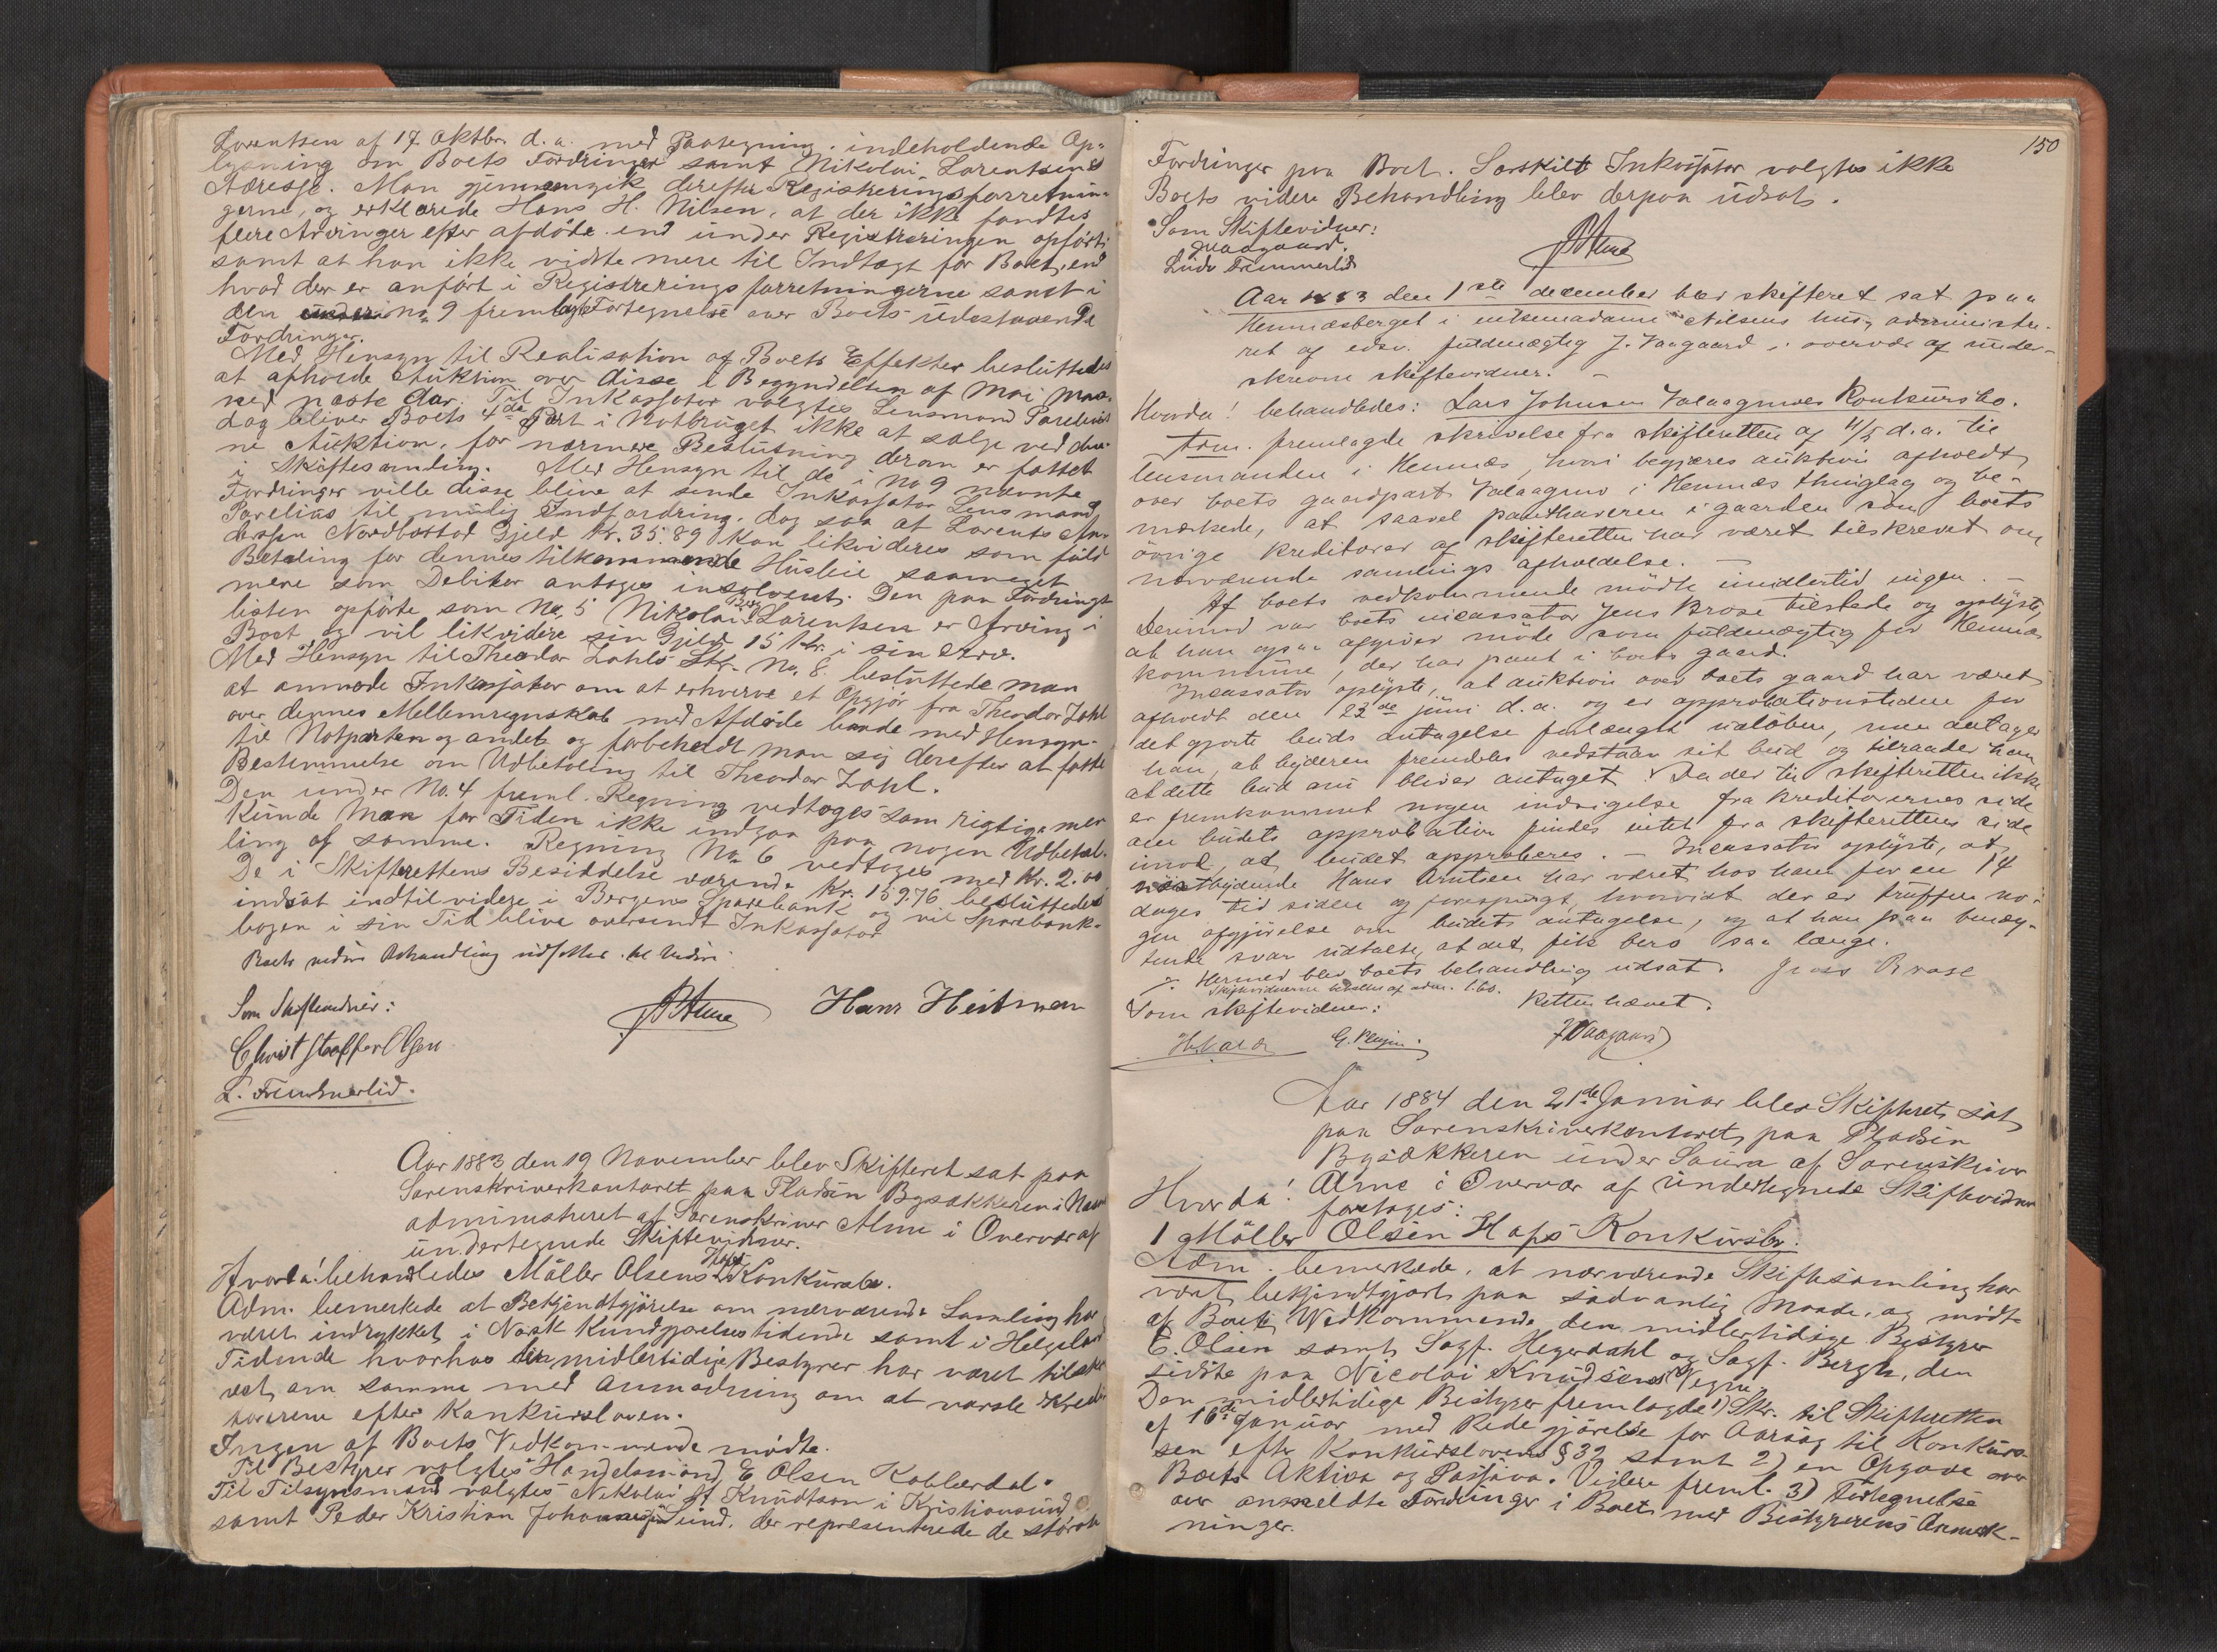 Lorentsen af 17 Oktbr. d. a. med Paategning, indeholdende Op-
lysning om Boets Fordringer samt Nikolai Lorentsens
Adresse. Man gjennemgik derefter Registreringsforretnin-
gerne, og erklærede Hans H. Nilsen, at der ikke fandtes
flere Arvinger efter afdøde end under Registreringen opført,
samt at han ikke vidste mere til Indtægt for Boet, end
hvad der er anført i Registreringsforretningerne samt i
den under No 9 fremlagte Fortegnelse over Boets udestaaende
Fordringer.
Med Hensyn til Realisation af Boets Effekter besluttedes
at afholde Auktion over disse i Begyndelsen af Mai Maa-
ned næste Aar. Til Inkassator valgtes Lensmand Parelius
dog bliver Boets 4de Part i Notbruget ikke at sælge ved den-
ne Auktion, før nærmere Beslutning derom er fattet
i Skiftesamling. Med Hensyn til de i No 9 nævnte
Fordringer ville disse blive at sende Inkassator Lensmand
Parelius til mulig Indfordring, dog saa at Lorents An-
derssen Nordbostad Gjeld Kr. 35.89 kan likvideres som fuld
Betaling for dennes tilkommende Husleie saameget
mere som Debitor antages insolvent. Den paa Fordrings-
listen opførte som No. 5 Nikolai Berg Lorentsen er Arving i
Boet og vil likvidere sin Gjeld 15 Kr. i sin Arv.
Med Hensyn til Theodor Zahls Skr. No. 8. besluttede man
at anmode Inkassator om at erhverve et Opgjør fra Theodor Zahl
over dennes Mellemregnskab med Afdøde baade med Hensyn
til Notparten og andet og forbeholdt man sig derefter at fatte
Bestemmelse om Udbetaling til Theodor Zahl.
Den under No. 4 freml. Regning vedtoges som rigtig, men
kunde man for Tiden ikke indgaa paa nogen Udbetal-
ling af samme. Regning No 6 vedtoges med Kr. 2.00
De i Skifterettens Besiddelse værende Kr. 159.76 besluttedes
indsat indtil videre i Bergens Sparebank og vil Sparebank-
bogen i sin Tid blive oversendt Inkassator
Boets videre Behandling udsattes til videre.
Som Skiftevidner:
Christoffer Olsen
L. Fremmerlid.
Hans Heitman
Aar 1883 den 19 November blev Skifteret sat paa
Sorenskriverkontoret paa Pladsen Bygsækkeren i
administreret af Sorenskriver Alme i Overvær af
undertegnede Skiftevidner.
Hvorda! behandledes Møller Olsens Haps Konkursbo.
Adm. bemerkede at Bekjendtgjørelse om nærværende Samling har
været indrykket i Norsk Kundgjørelsestidende samt i Helgelands
Tidende hvorhos den midlertidige Bestyrer har været tilskre-
vet om samme med Anmodning om at varsle Kredi-
torerene efter Konkursloven.
Ingen af Boets Vedkommende mødte.
Til Bestyrer valgtes Handelsmand E Olsen Kobberdal.
Til Tilsynsmænd valgtes Nikolai H. Knudtzon i Kristiansund
samt Peder Kristian Johannesen Sund, der repræsenterede de største
150
Fordringer paa Boet. Særskilt Inkassator valgtes ikke
Boets videre Behandling blev derpaa udsat.
Som Skiftevidner:
JVaagaard.
Ludv Fremmerlid
Aar 1883 den 1ste december blev skifteret sat paa
Hemnæsberget i enkemadame Nilsens hus, administre-
ret af edsv. fuldmægtig J. Vaagaard, i overvær af under-
skrevne skiftevidner. –
Hvorda! behandledes: Lars Johnsen Valaagmos Konkursbo.
Adm. fremlagde skrivelse fra skifteretten af 4/5 d. a. til
lensmanden i Hemnæs, hvori begjæres auktion afholdt
over boets gaardpart Valaagmo i Hemnæs thinglag og be-
mærkede, at saavel panthaveren i gaarden som boets
øvrige kreditorer af skifteretten har været tilskrevet om
nærværende samlings afholdelse. –
Af boets vedkommende mødte imidlertid ingen. –
Derimod var boets incassator Jens Brose tilstede og oplyste,
at han ogsaa afgiver møde som fuldmægtig for Hemnæs
kommune, der har pant i boets gaard.
Incassator oplyste, at auktion over boets gaard har været
afholdt den 22de juni d. a. og er approbationstiden for
det gjorte buds antagelse forlængst udløben, men antager
han, at byderen fremdeles vedstaar sit bud og tilraader han
at dette bud nu bliver antaget. Da der til skifteretten ikke
er fremkommet nogen indsigelse fra kreditorernes side
om budets approbation findes intet fra skifterettens side
imod, at budet approberes. – Incassator oplyste, at
høistbydende Hans Arntsen har været hos ham for en 14
dages tid siden og forespurgt, hvorvidt der er truffen no-
gen afgjørelse om budets antagelse, og at han paa benæg-
tende svar udtalte, at det fik bero saa længe.
Hermed blev boets behandling udsat. Jens Brose
Skiftevidnerne
Som skiftevidner: Retten hævet.
JVaagaard
Aar 1884 den 21de Januar blev Skifteret sat
paa Sorenskriverkontoret paa Pladsen
Bygsækkeren under Saura af Sorenskriver
Alme i Overvær af undertegnede Skiftevidner
Hvorda! foretoges:
1 Møller Olsen Haps Konkursbo.
Adm. bemerkede, at nærværende Skiftesamling har
været bekjendtgjort paa sædvanlig Maade, og mødte
af Boets Vedkommende den midlertidige Bestyrer
E. Olsen samt Sagf. Hegerdahl og Sagf. Bergh, den
sidste paa Nicolai Knudsens Vegne
Den midlertidige Bestyrer fremlagde 1) Skr. til Skifteretten
af 16de Januar med Redegjørelse for Aarsag til Konkur-
sen efter Konkurslovens § 32 samt 2) en Opgave over
Boets Aktiva og Passiva. Videre freml. 3) Fortegnelse
over anmeldte Fordringer i Boet med Bestyrerens Anmerk-
ninger.